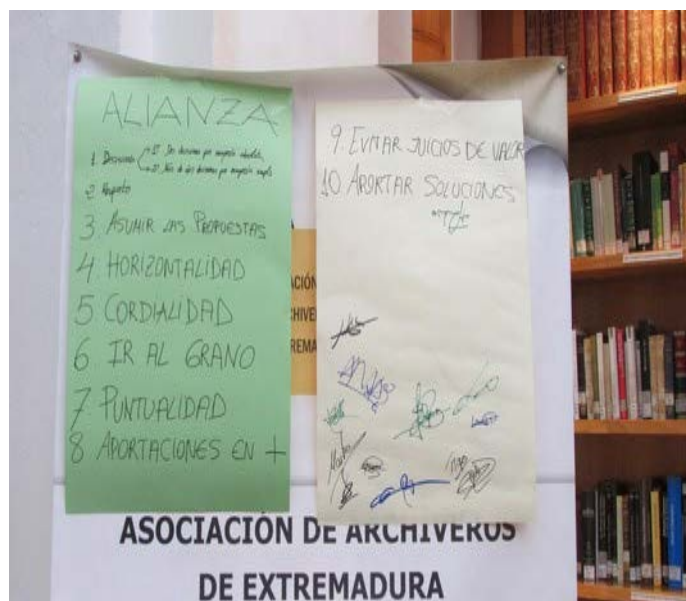 ALIANZA
1. Decisiones
2 Respeto
3 ASUMIR LAS PROPUESTAS
4 HORIZONTALIDAD
5 CORDIALIDAD
6 IR AL GRANO
7 PUNTUALIDAD
8 APORTACIONES EN +
9. EVITAR JUICIOS DE VALOR
10 APORTAR SOLUCIONES
CIÓN
CHIVE
REMA
ASOCIACIÓN DE ARCHIVEROS
DE EXTREMADURA